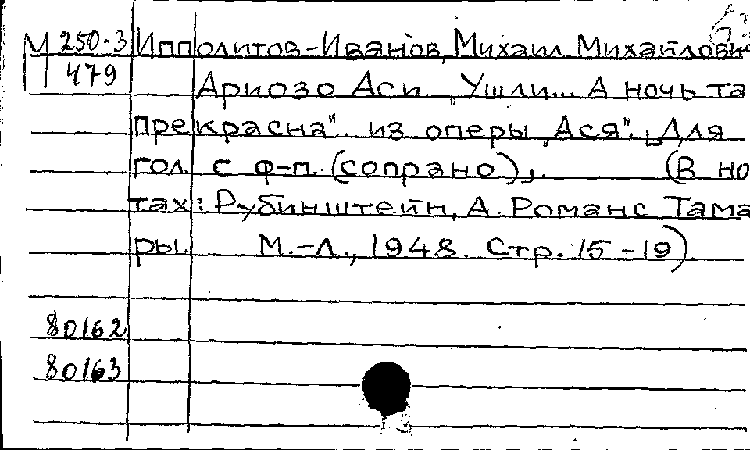 М 250-3 Ипполитов-Иванов, Михаил Михайлович
479 Ариозо Аси „Ушли... А ночь та
прекрасна". из оперы „Ася". Для
гол. с ф-п. (сопрано). (В но
тах: Рубинштейн, А. Романс Тама
ры. М.-Л., 1948. Стр. 15-19)
80162
80163